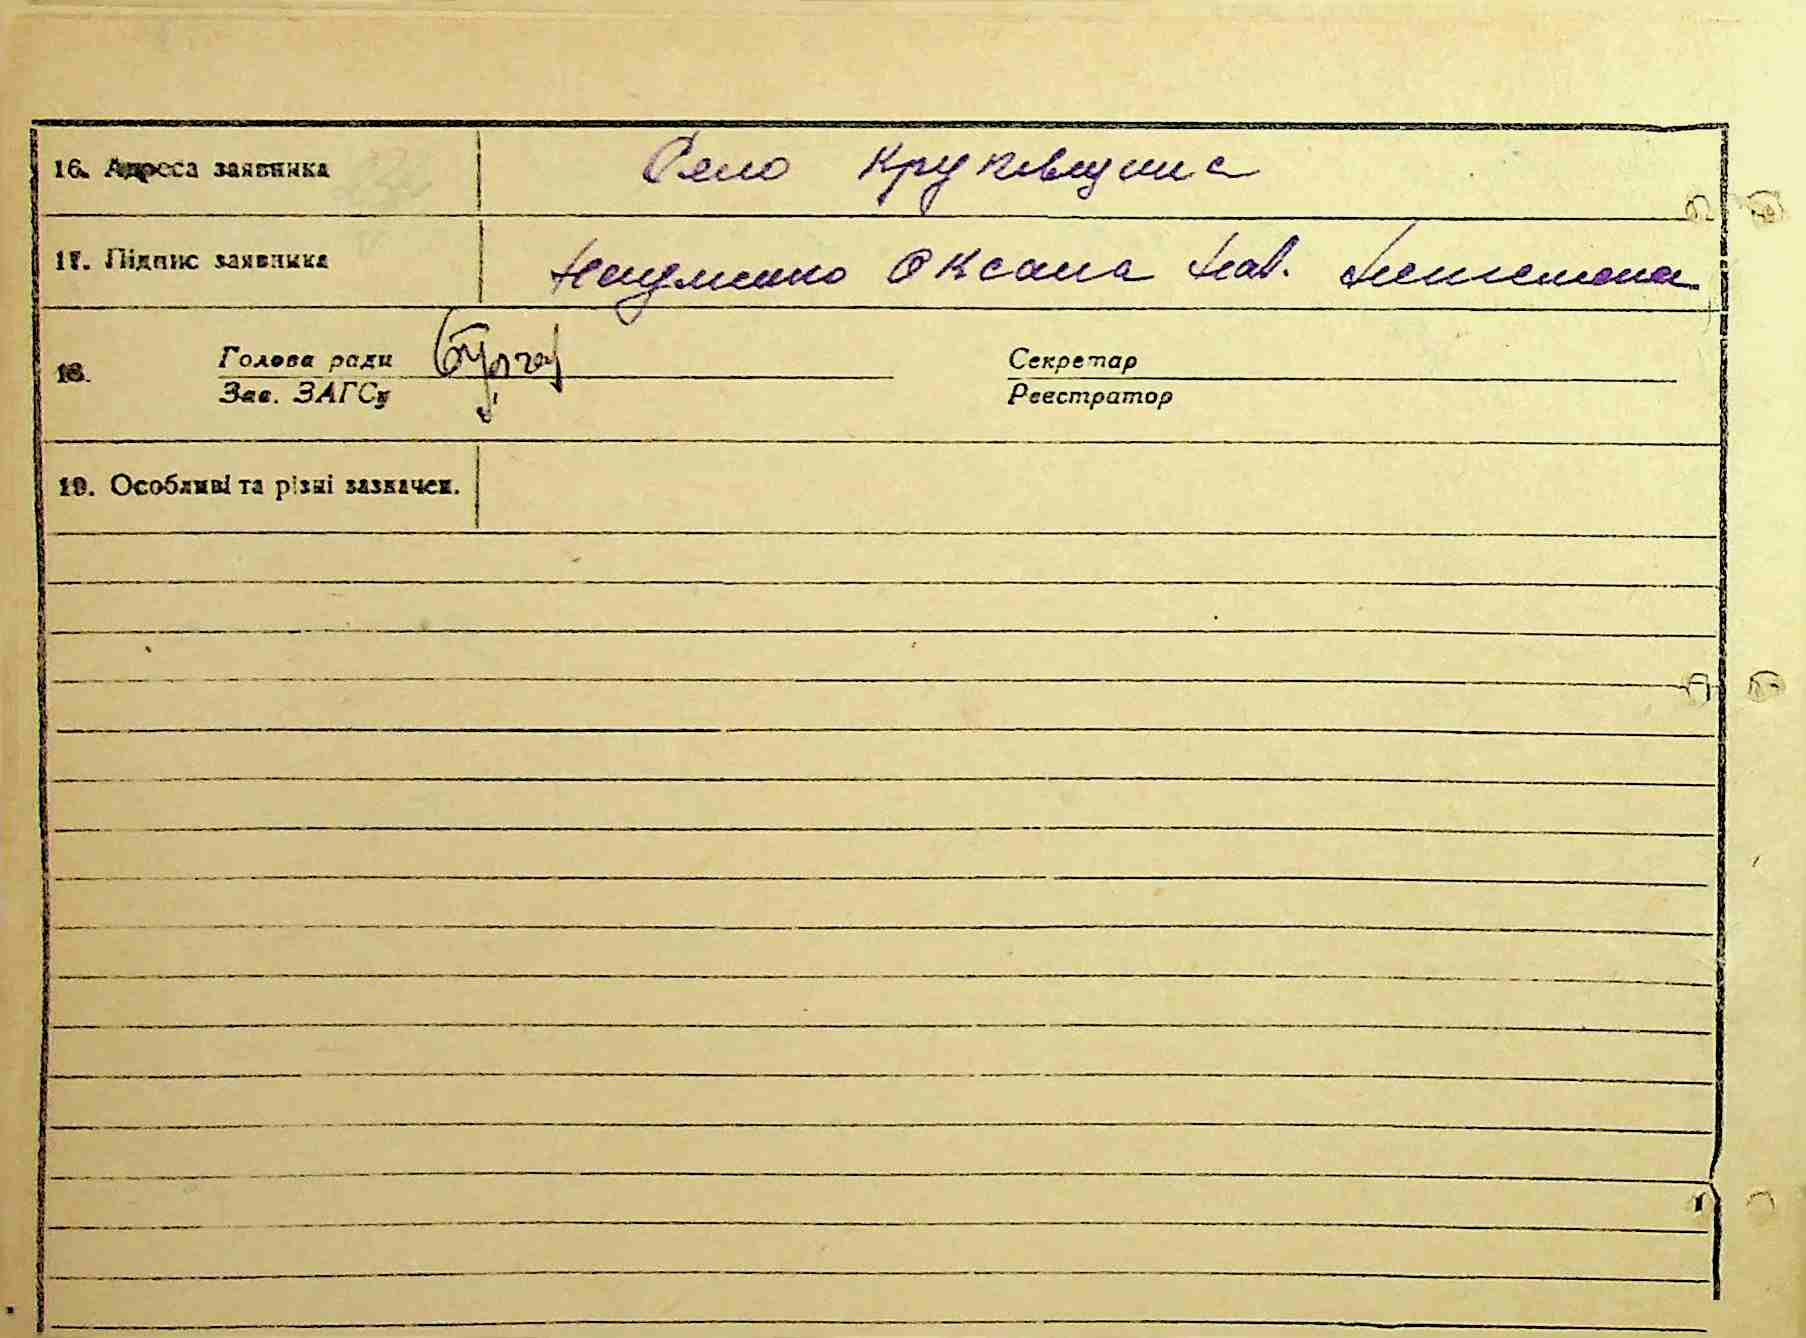 16. Адреса заявника Село Крупівщина
17. Підпис заявника Науменко Оксана Нав. неписмена
18. Голова ради Секретар
Зав. ЗАГСу Реєстратор
19. Особливі та різні зазначен.